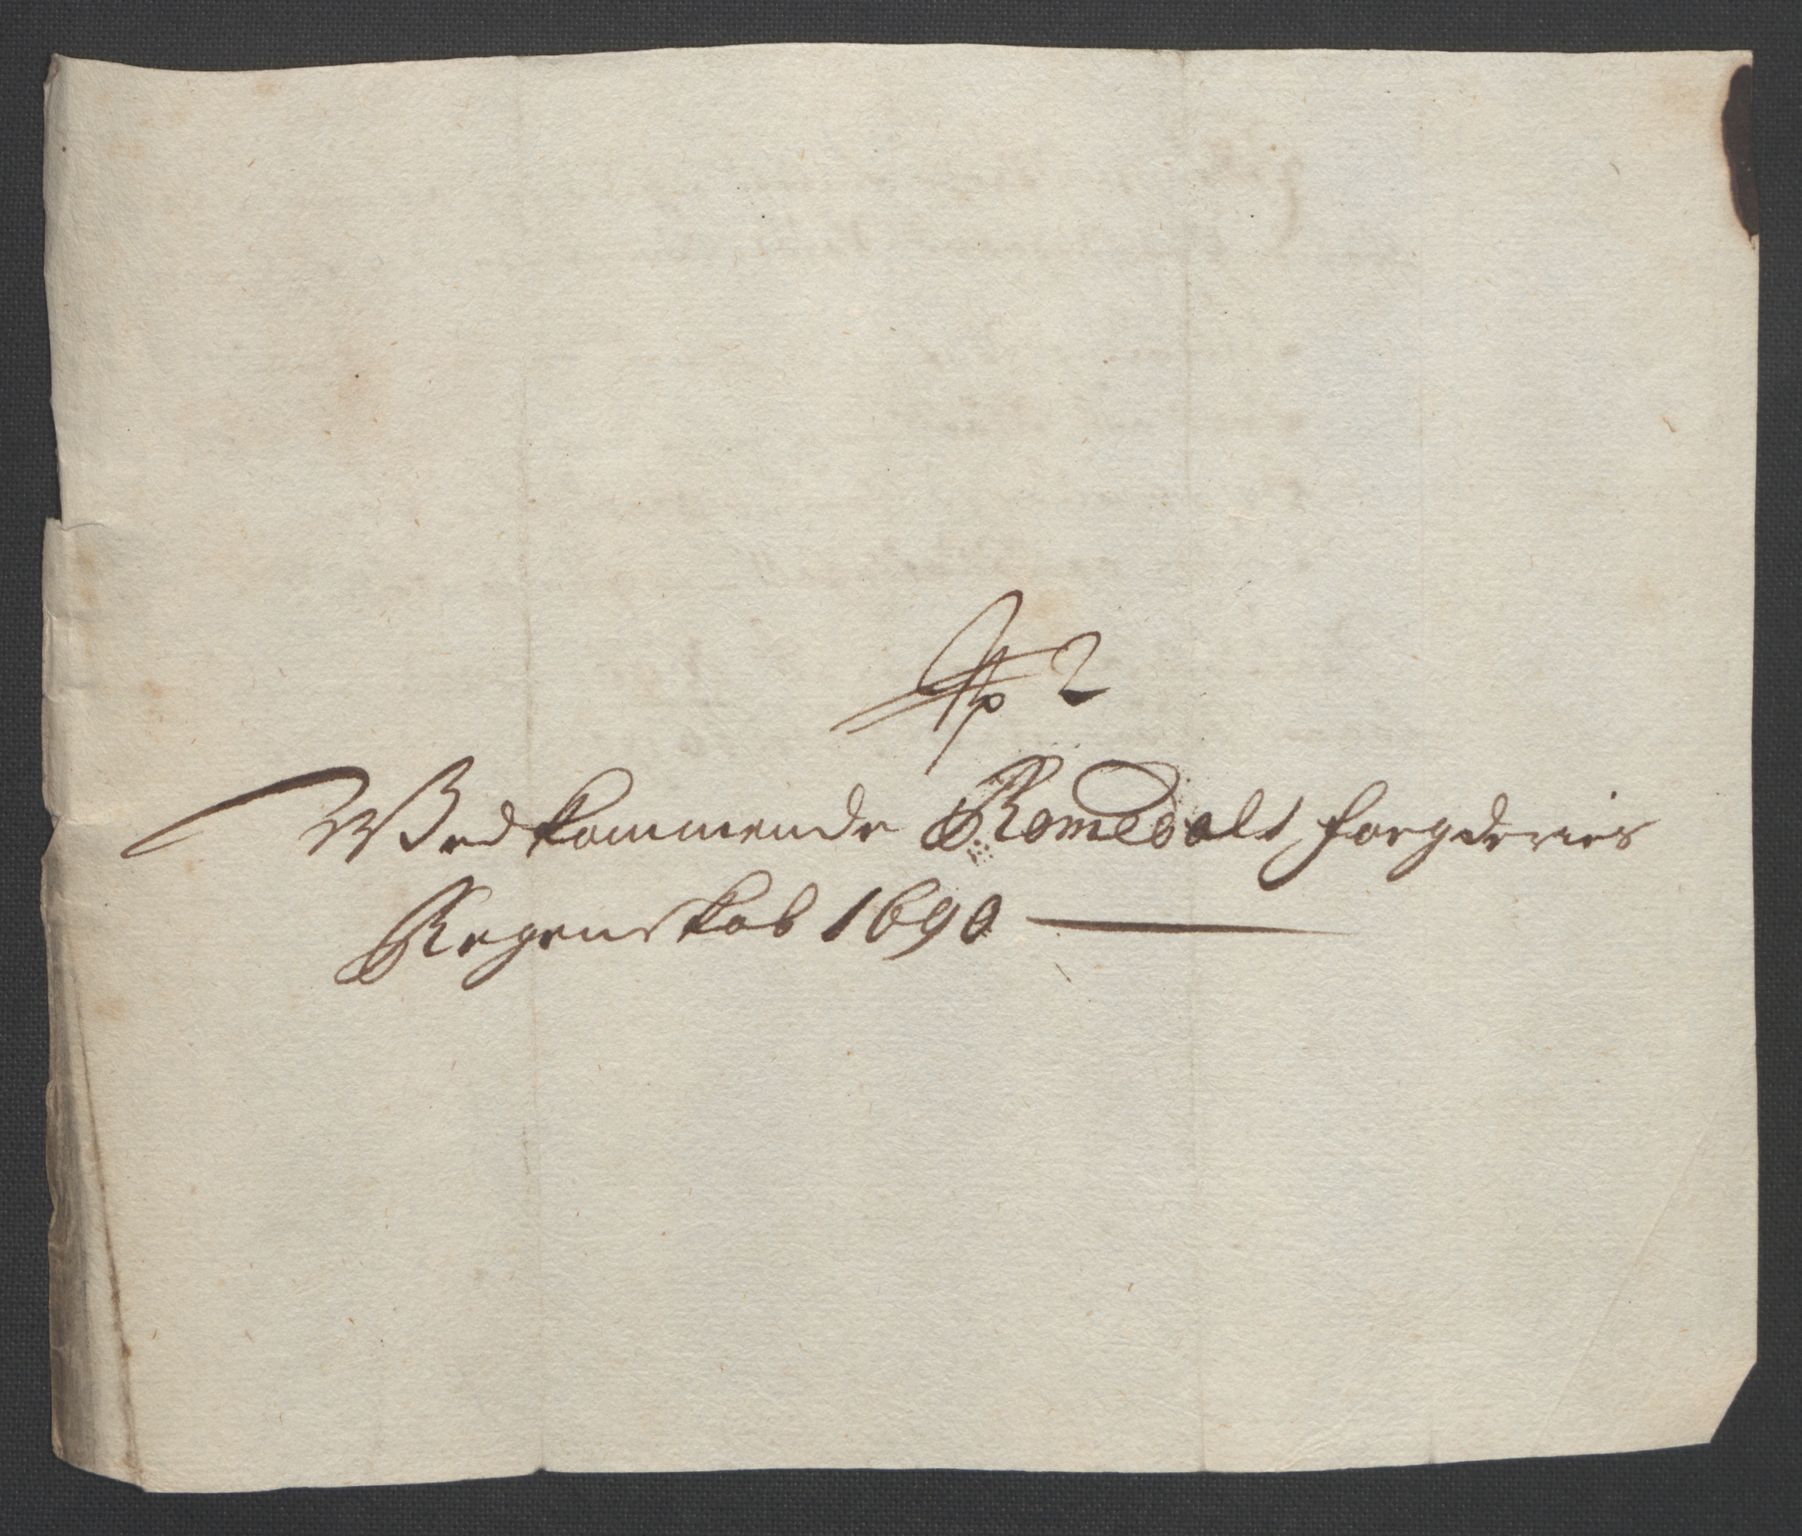 No 2
Vedkommende Romsdals fougderies
Regenskab 1690